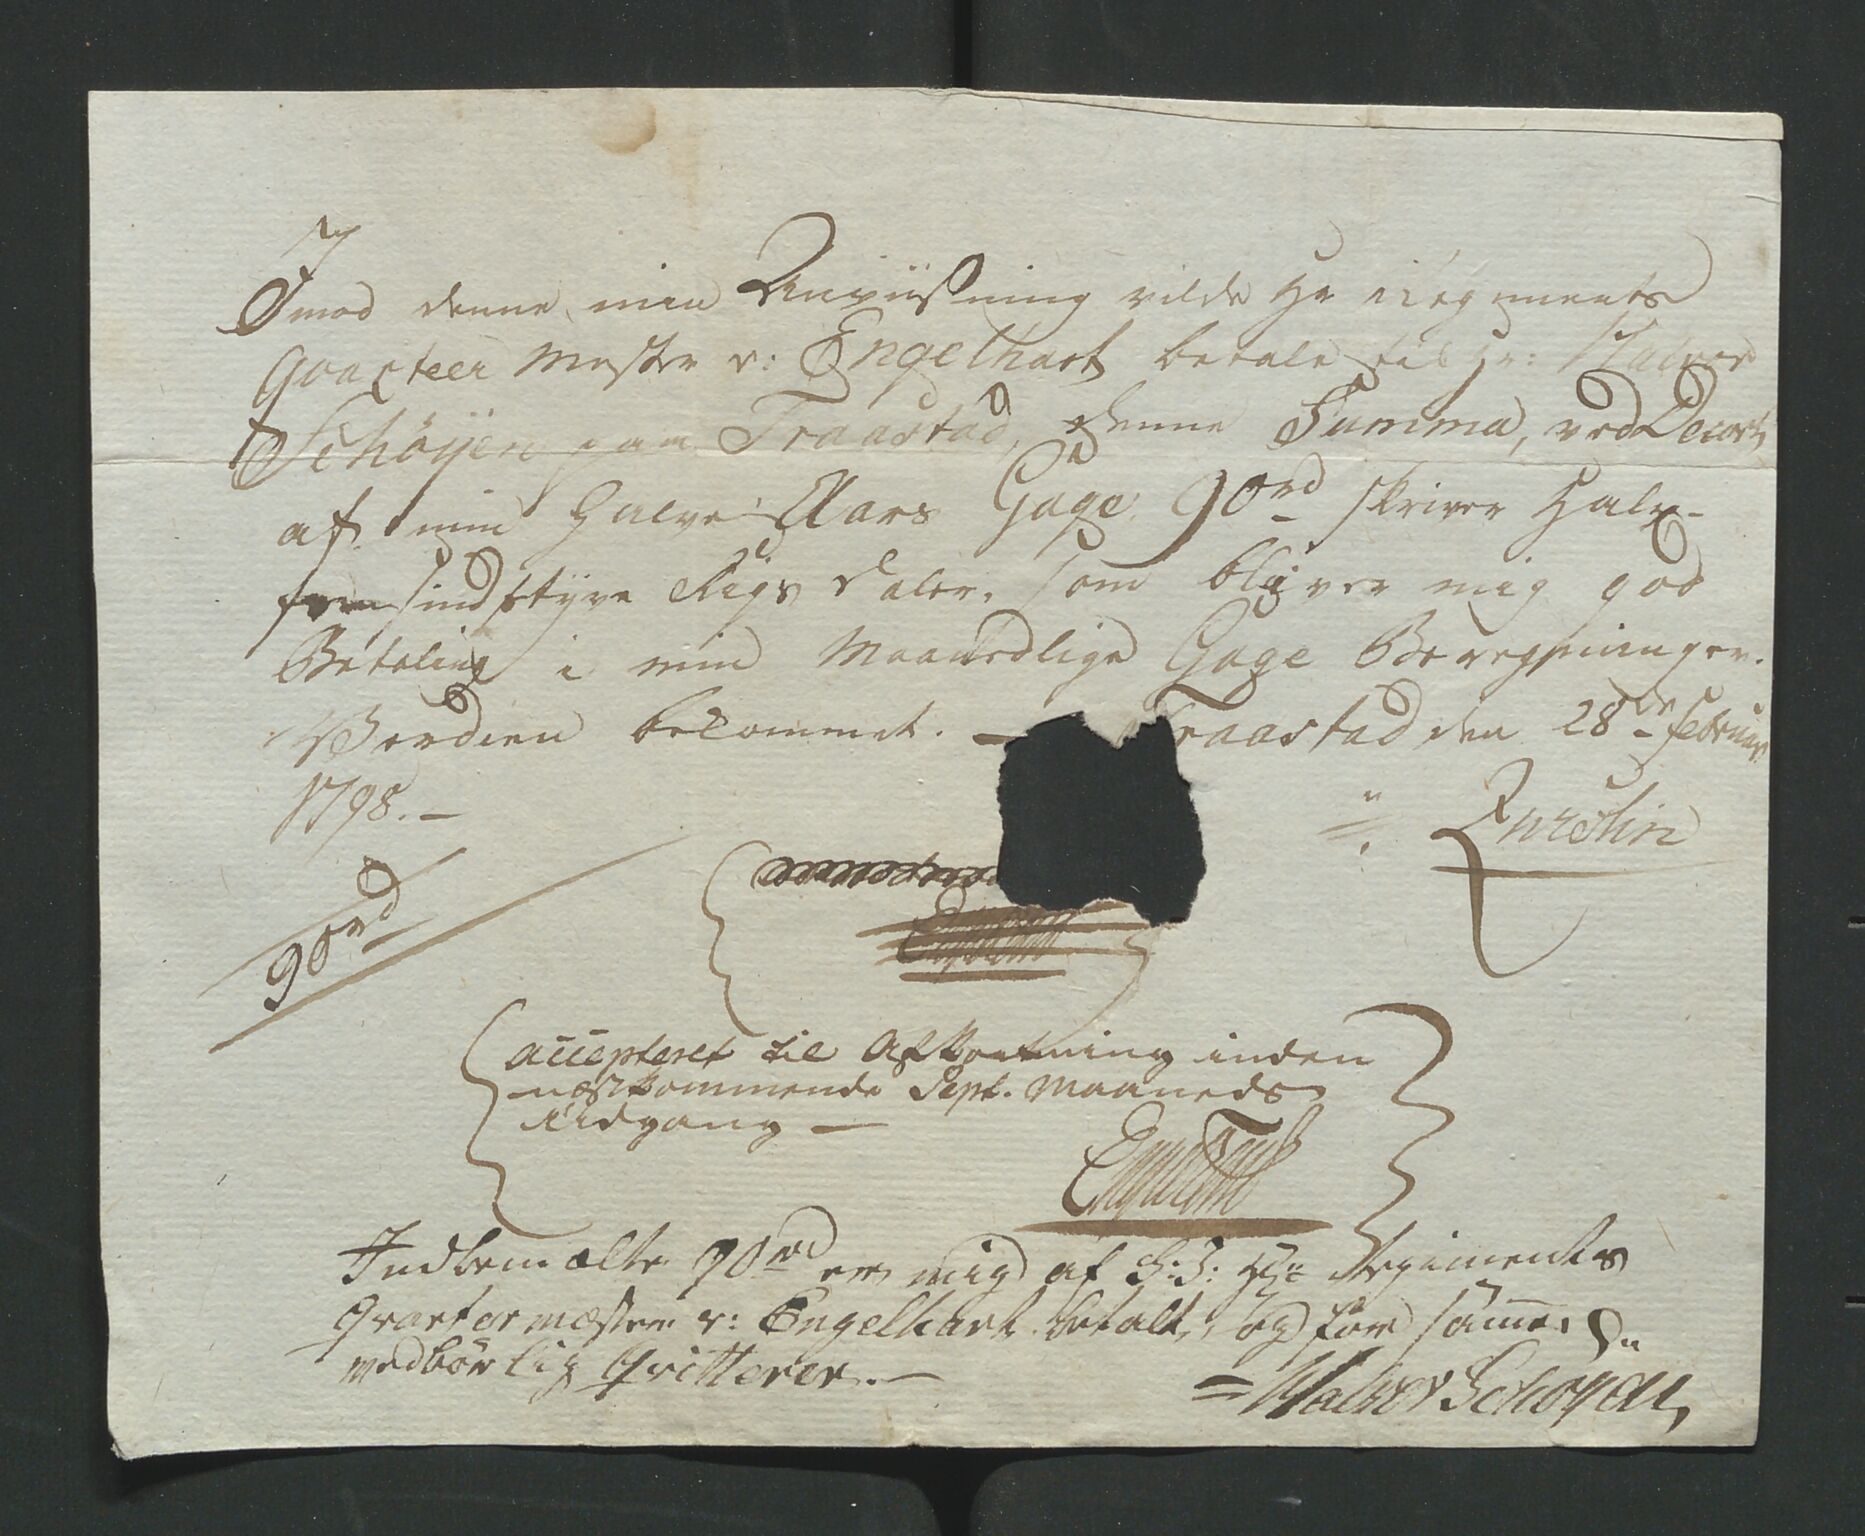 Imod denne min Anviisning vilde Hr Regiments
Qvarteer Mester v: Engelhart betale til Hr: Halvor
Schöyen paa Traastad, denne Summa, ved Decort
af min Halve Aars Gage 90rd skriver Halv-
femsindstyve Rigsdaler, som bliver mig god
Betaling i min Maanedlige Gage Beregninger.
Verdien bekommet. — Traastad den 28de Februar
1798. —
90rd
accepteret til Afkortning inden
næstkommende Sept. Maaneds
Udgang —
Indbemælte 90rd er mig af S: T: Hr: Regiments
Qvartermester v: Engelhart betalt, og for samme
vedbörlig Qvitterer. —
= Halvor Schöyen